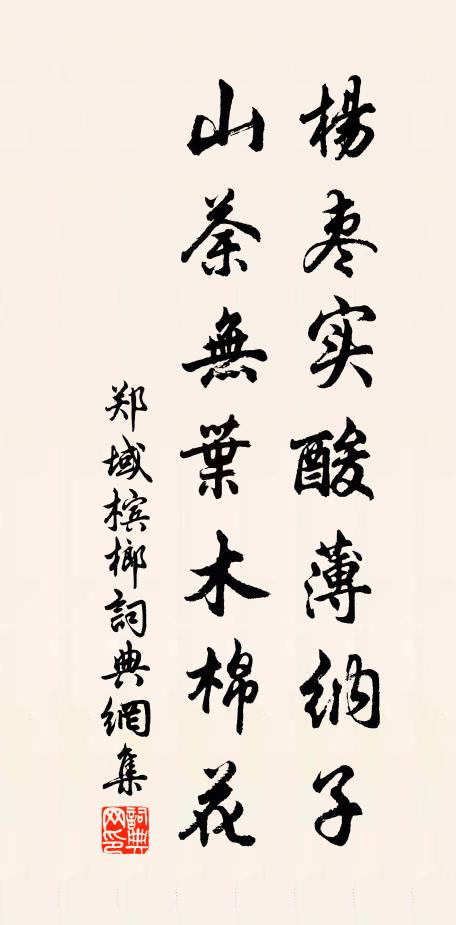 楊枣实酸薄纳子
山茶無葉木棉花
郑域槟榔詞典網集
詞典网印